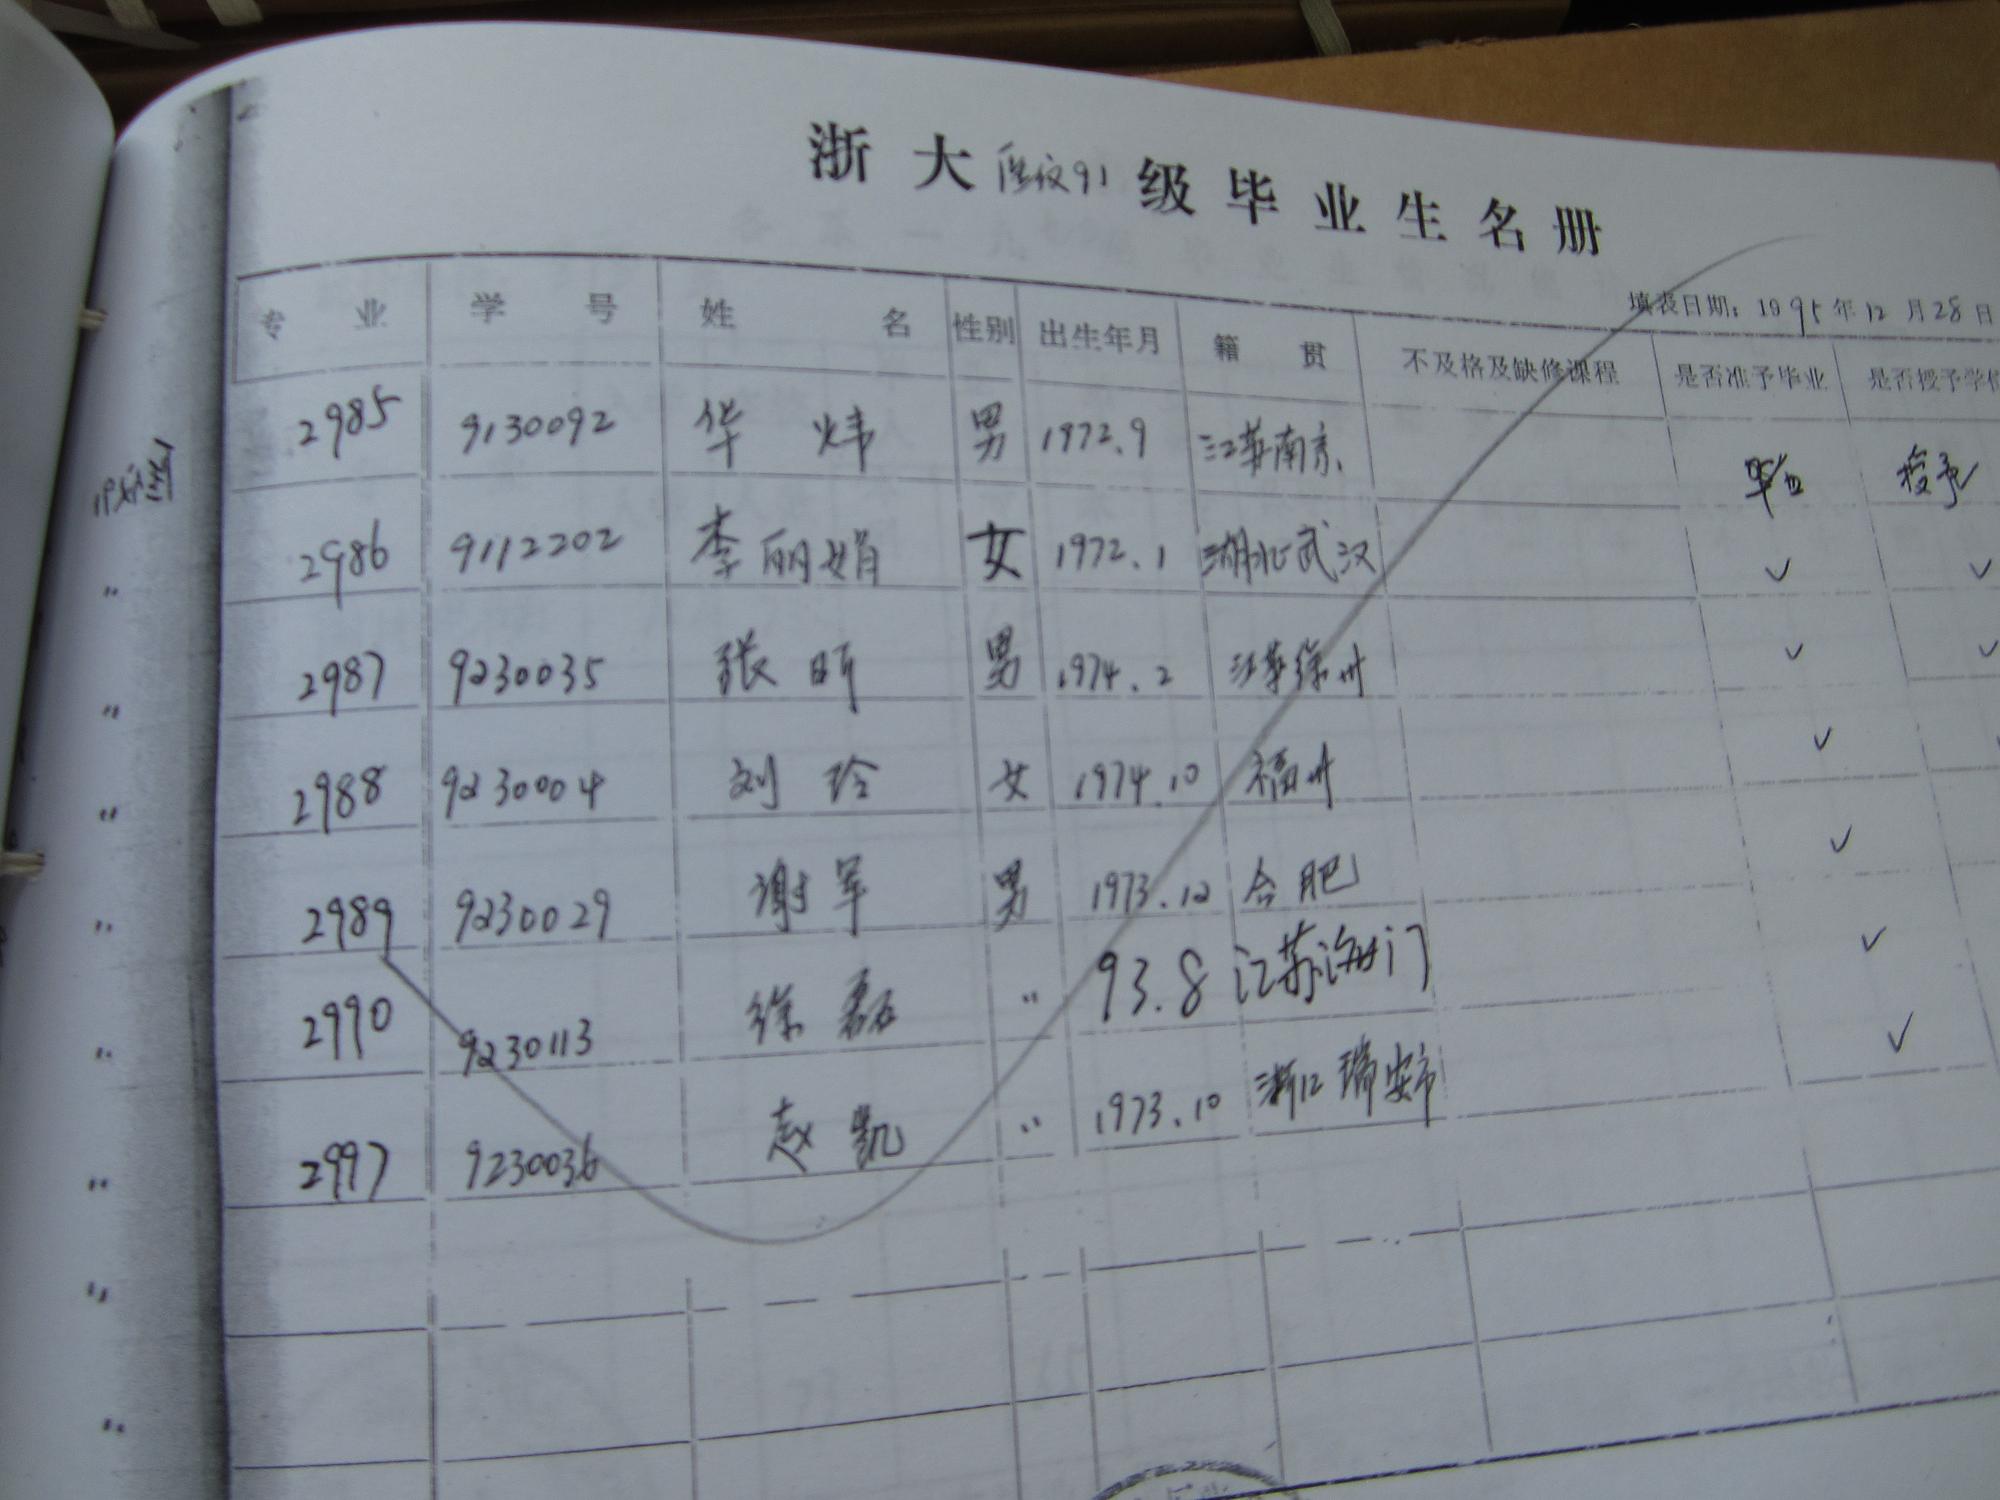 浙大 91 级毕业生名册
填表日期：1995年12月28日
专业 学号 姓名 性别 出生年月 籍贯 不及格及缺修课程 是否准予毕业 是否授予学位
2985 9130092 华炜 男 1972.9 江苏南京 毕业 授予
2986 9112202 李丽娟 女 1972.1 湖北武汉 ✓ ✓
〃 2987 9230035 张昕 男 1974.2 江苏徐州 ✓ ✓
〃 2988 9230004 刘玲 女 1974.10 福州 ✓
〃 2989 9230029 谢军 男 1973.12 合肥 ✓
〃 2990 9230113 徐磊 〃 93.8 江苏海门 ✓
〃 2997 9230036 赵凯 〃 1973.10 浙江瑞安市 ✓